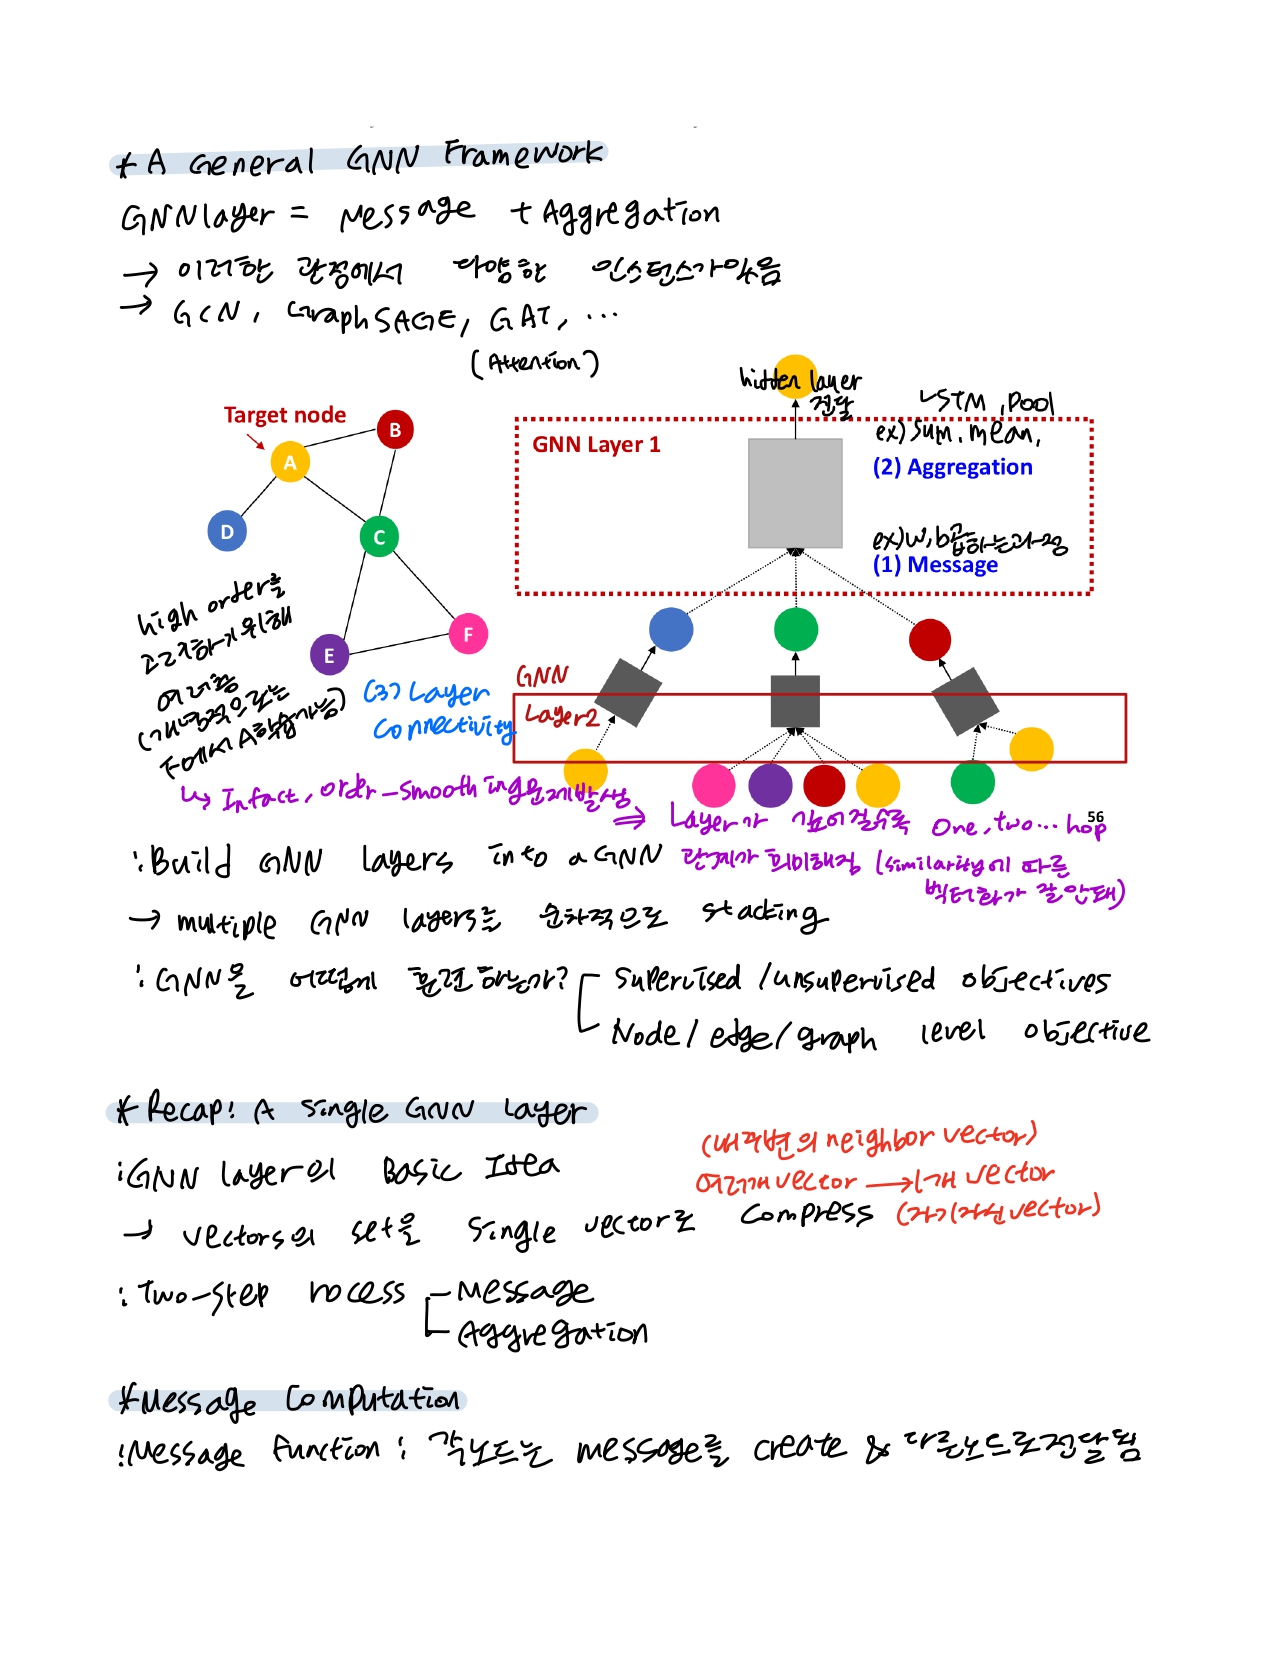 * A General GNN Framework
GNN layer = Message + Aggregation
→ 이러한 관점에서 다양한 인스턴스가 있음
→ GCN, GraphSAGE, GAT, ...
(Attention)
hidden layer
전달
LSTM, pool
ex) sum, mean,
Target node
GNN Layer 1
(2) Aggregation
ex) w, b 곱하는 과정
(1) Message
A
B
C
D
E
F
high order를
고려하기 위해
여러황
(개념적으로는
F에서 A학습가능)
(3) Layer
Connectivity
GNN
Layer2
↳ Infact, order-smoothing문제발생
⇒ Layer가 깊어질수록 One, two... hop
56
관계가 희미해짐 (similarity에 따른
벡터화가 잘 안돼)
: Build GNN layers into a GNN
→ multiple GNN layers를 순차적으로 stacking
: GNN을 어떻게 훈련하는가? Supervised / unsupervised objectives
Node / edge / graph level objective
* Recap: A single GNN Layer
: GNN layer의 Basic Idea
(내 주변의 neighbor vector)
여러개 vector → 1개 vector
→ vectors의 set을 single vector로 compress (자기자신 vector)
: Two-step process - Message
Aggregation
* Message Computation
: Message function : 각 노드는 message를 create & 다른노드로 전달됨